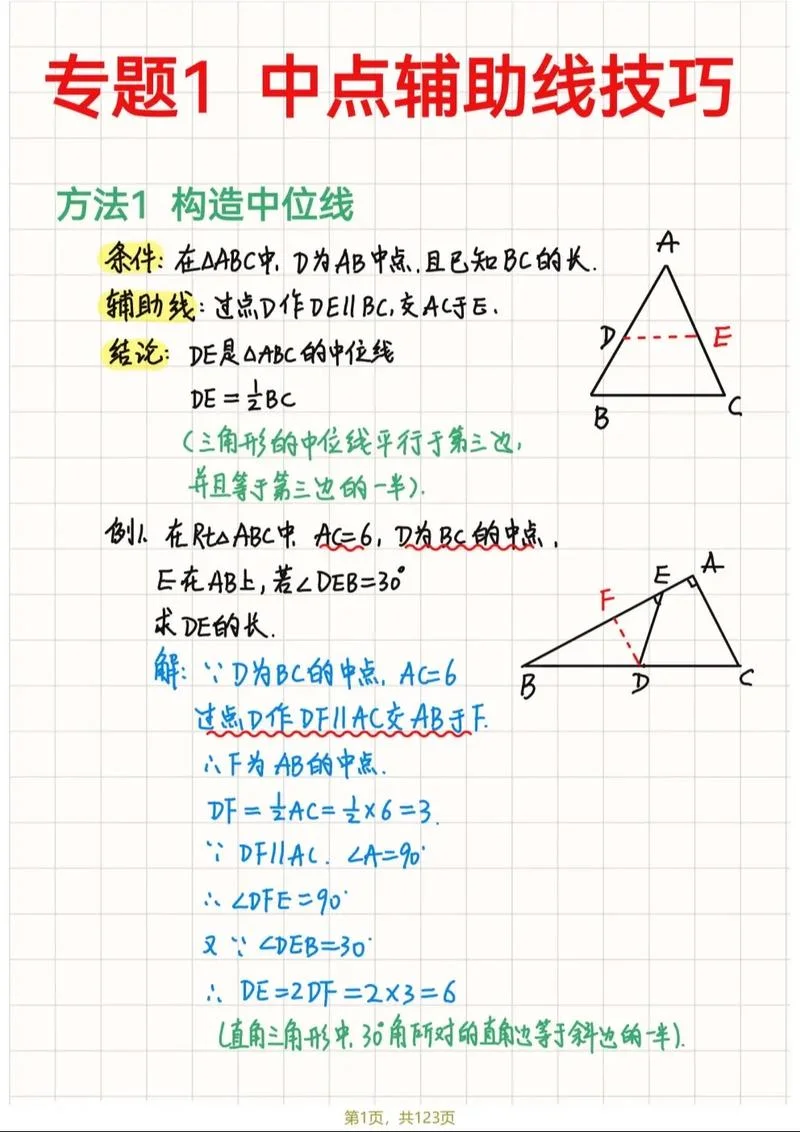 专题1 中点辅助线技巧
方法1 构造中位线
条件: 在△ABC中, D为AB中点,且已知BC的长.
辅助线: 过点D作DE∥BC,交AC于E.
结论: DE是△ABC的中位线
DE=½BC
(三角形的中位线平行于第三边,
并且等于第三边的一半).
A
D
E
B
C
例1. 在Rt△ABC中, AC=6, D为BC的中点,
E在AB上,若∠DEB=30°
求DE的长.
A
E
F
B
D
C
解: ∵D为BC的中点, AC=6
过点D作DF∥AC交AB于F.
∴F为AB的中点.
DF=½AC=½×6=3.
∵ DF∥AC. ∠A=90°
∴ ∠DFE=90°
又∵ ∠DEB=30°
∴ DE=2DF=2×3=6
(直角三角形中, 30°角所对的直角边等于斜边的一半).
第1页，共123页